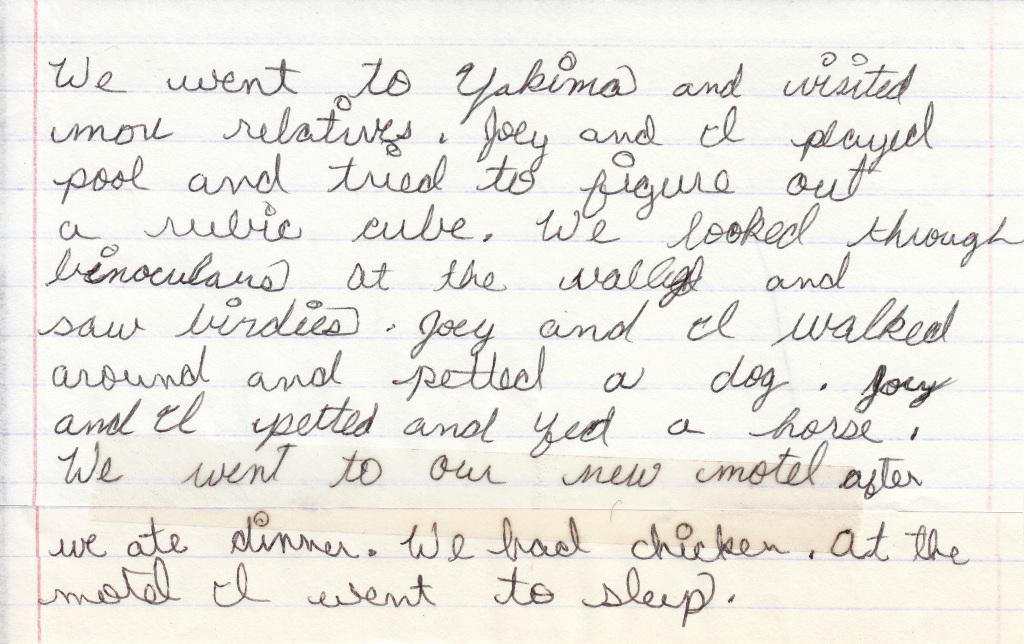 We went to Yakima and visited
mor relatives. Joey and I played
pool and tried to figure out
a rubic cube. We looked through
binoculars at the valley and
saw birdies. Joey and I walked
around and petted a dog. Joey
and I petted and fed a horse.
We went to our new motel after
we ate dinner. We had chicken. At the
motel I went to sleep.